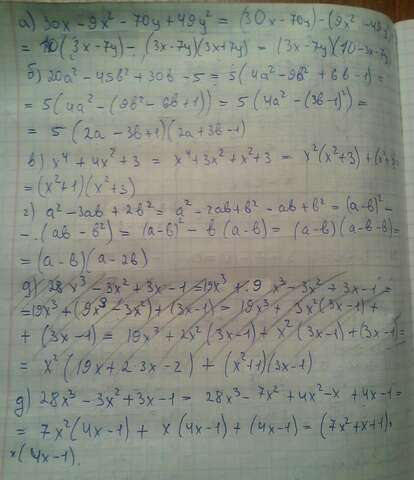 а) 30x - 9x² - 70y + 49y² = (30x - 70y) - (9x² - 49y²)
= 10(3x - 7y) - (3x - 7y)(3x + 7y) = (3x - 7y)(10 - 3x - 7y)
б) 20a² - 45b² + 30b - 5 = 5(4a² - 9b² + 6b - 1) =
= 5(4a² - (9b² - 6b + 1)) = 5(4a² - (3b - 1)²) =
= 5(2a - 3b + 1)(2a + 3b - 1)
в) x⁴ + 4x² + 3 = x⁴ + 3x² + x² + 3 = x²(x² + 3) + (x² + 3
= (x² + 1)(x² + 3)
г) a² - 3ab + 2b² = a² - 2ab + b² - ab + b² = (a - b)² -
- (ab - b²) = (a - b)² - b(a - b) = (a - b)(a - b - b) =
= (a - b)(a - 2b)
д) 28x³ - 3x² + 3x - 1 = 19x³ + 9x³ - 3x² + 3x - 1 =
= 19x³ + (9x³ - 3x²) + (3x - 1) = 19x³ + 3x²(3x - 1) +
+ (3x - 1) = 19x³ + 2x²(3x - 1) + x²(3x - 1) + (3x - 1) =
= x²(19x + 2 3x - 2) + (x² + 1)(3x - 1)
д) 28x³ - 3x² + 3x - 1 = 28x³ - 7x² + 4x² - x + 4x - 1 =
= 7x²(4x - 1) + x(4x - 1) + (4x - 1) = (7x² + x + 1)·
×(4x - 1).